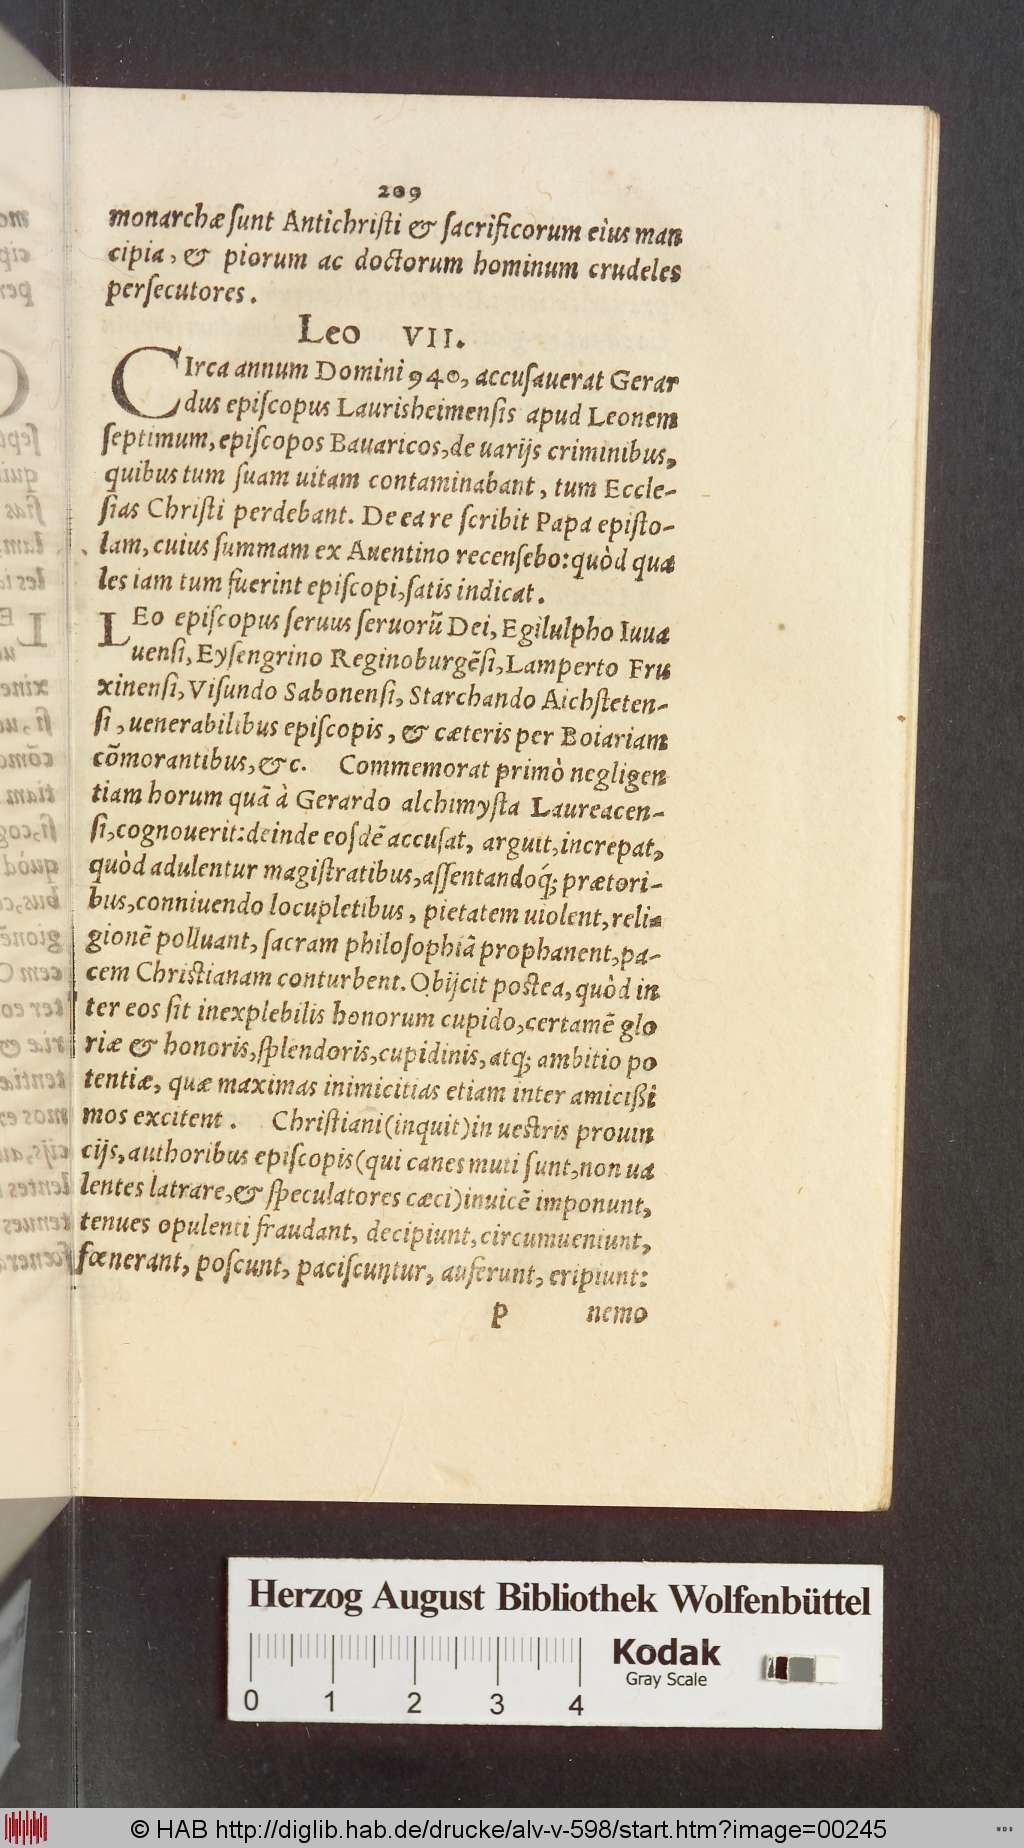 209
monarchæ sunt Antichristi & sacrificorum eius man
cipia, & piorum ac doctorum hominum crudeles
persecutores.
Leo VII.
CIrca annum Domini 940, accusauerat Gerar
dus episcopus Laurisheimensis apud Leonem
septimum, episcopos Bauaricos, de uarijs criminibus,
quibus tum suam uitam contaminabant, tum Eccle-
sias Christi perdebant. De ea re scribit Papa episto-
lam, cuius summam ex Auentino recensebo: quòd qua
les iam tum fuerint episcopi, satis indicat.
LEo episcopus seruus seruorũ Dei, Egilulpho Iuua
uensi, Eysengrino Reginoburgẽsi, Lamperto Fru
xinensi, Visundo Sabonensi, Starchando Aichsteten-
si, uenerabilibus episcopis, & cæteris per Boiariam
cõmorantibus, &c. Commemorat primò negligen
tiam horum quã à Gerardo alchimysta Laureacen-
si, cognouerit: deinde eosdẽ accusat, arguit, increpat,
quòd adulentur magistratibus, assentandoq́; prætori-
bus, conniuendo locupletibus, pietatem uiolent, reli-
gionẽ polluant, sacram philosophiã prophanent, pa-
cem Christianam conturbent. Obijcit postea, quòd in
ter eos sit inexplebilis honorum cupido, certamẽ glo
riæ & honoris, splendoris, cupidinis, atq; ambitio po
tentiæ, quæ maximas inimicitias etiam inter amicißi
mos excitent. Christiani (inquit) in uestris prouin
cijs, authoribus episcopis (qui canes muti sunt, non ua
lentes latrare, & speculatores cæci) inuicẽ imponunt,
tenues opulenti fraudant, decipiunt, circumueniunt,
fœnerant, poscunt, paciscuntur, auferunt, eripiunt:
p nemo
Herzog August Bibliothek Wolfenbüttel
Kodak
Gray Scale
0 1 2 3 4
© HAB http://diglib.hab.de/drucke/alv-v-598/start.htm?image=00245